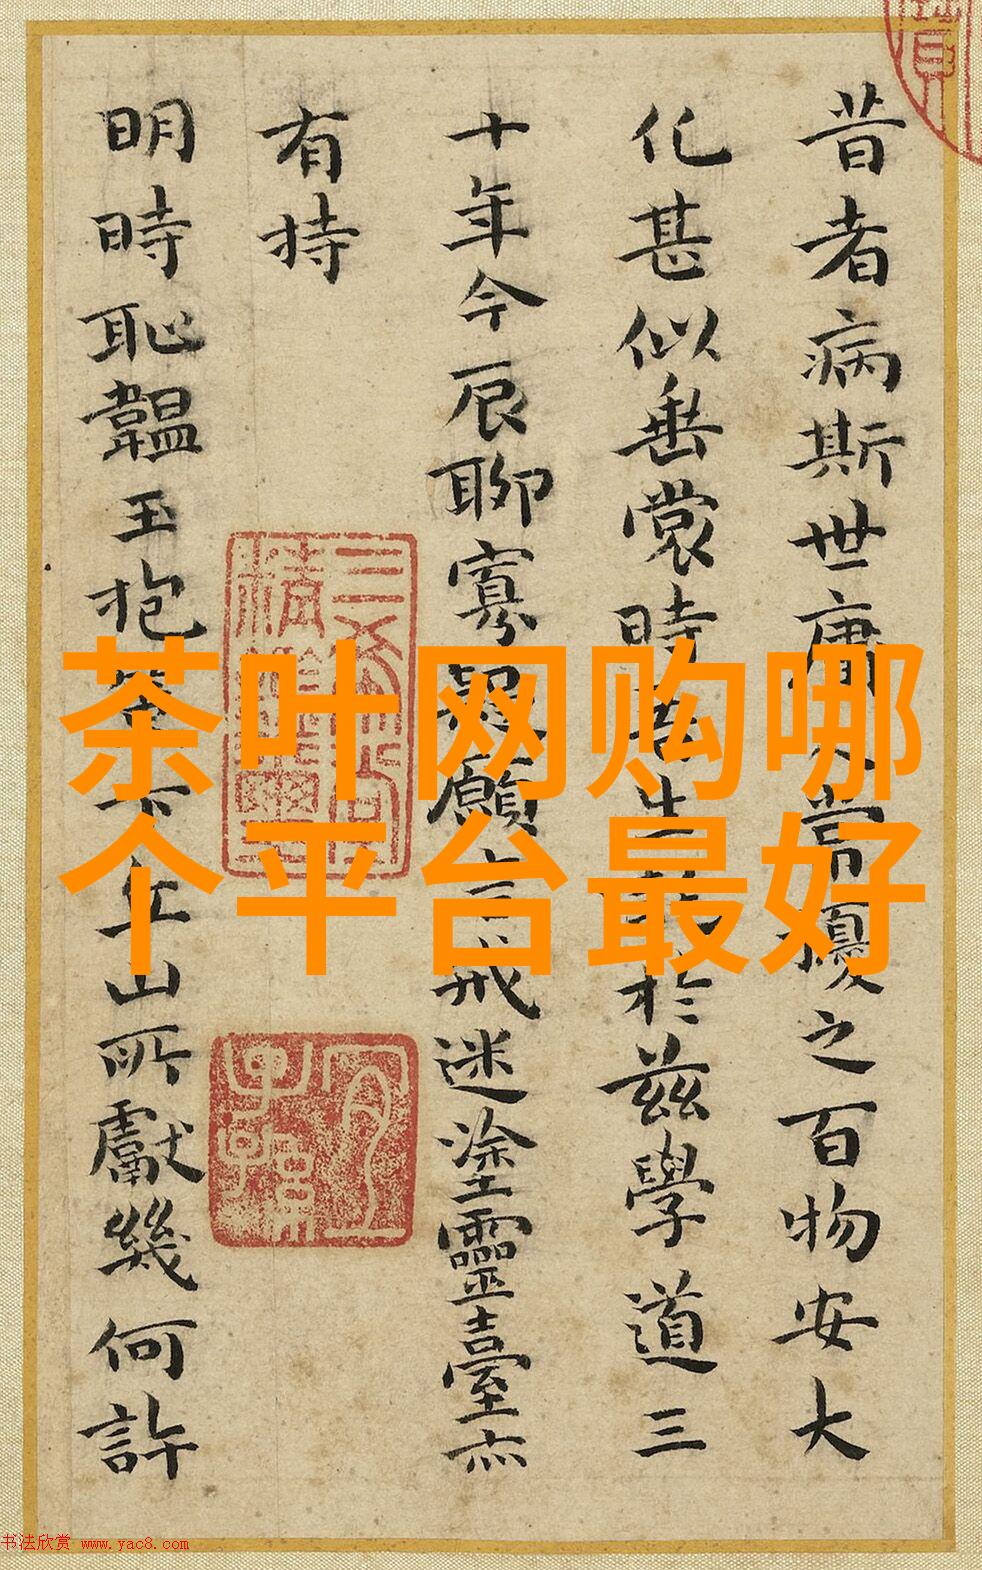 昔者病斯世庸人常擾之百物安大
化甚似垂裳時吾生於茲學道三
十年今辰聊寡願言戒迷塗靈臺亦
有持
明時恥韞玉抱丘山所獻幾何許
茶叶网购哪
个平台最好
书法欣赏 www.yac8.com